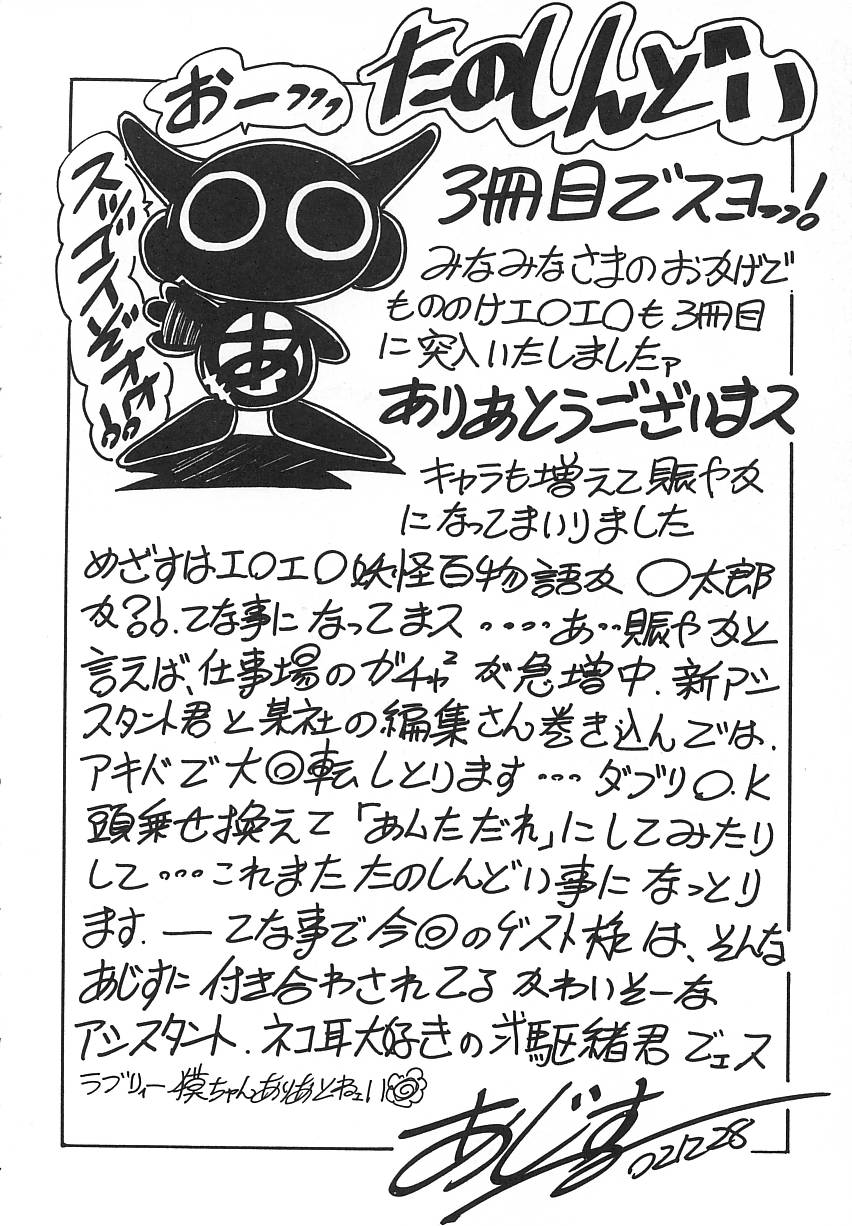 たのしんどい
おーっっっ
スッゴイぞオオ!!
3冊目でスヨっっ!
みなみなさまのおかげで
もののけエ〇エ〇も3冊目
に突入いたしましたァ
ありあとうございまス
キャラも増えて賑やか
になってまいりました
めざすはエ〇エ〇妖怪百物語か 〇太郎
か?!.てな事になってまス‥‥あ…賑やかと
言えば、仕事場のガチャ²が急増中.新アシ
スタント君と某社の編集さん巻き込んでは.
アキバで大回転しとります…ダブリO.K
頭乗せ換えて「あんただれ」にしてみたり
して…これまたたのしんどい事になっとり
ます.―てな事で今回のゲスト様は、そんな
あじすに付き合わされてるかわいそーな
アシスタント.ネコ耳大好きの 駆緒君でェス
ラブリィー 猫ちゃんありあとねェい
あ
あじす
02.12.28